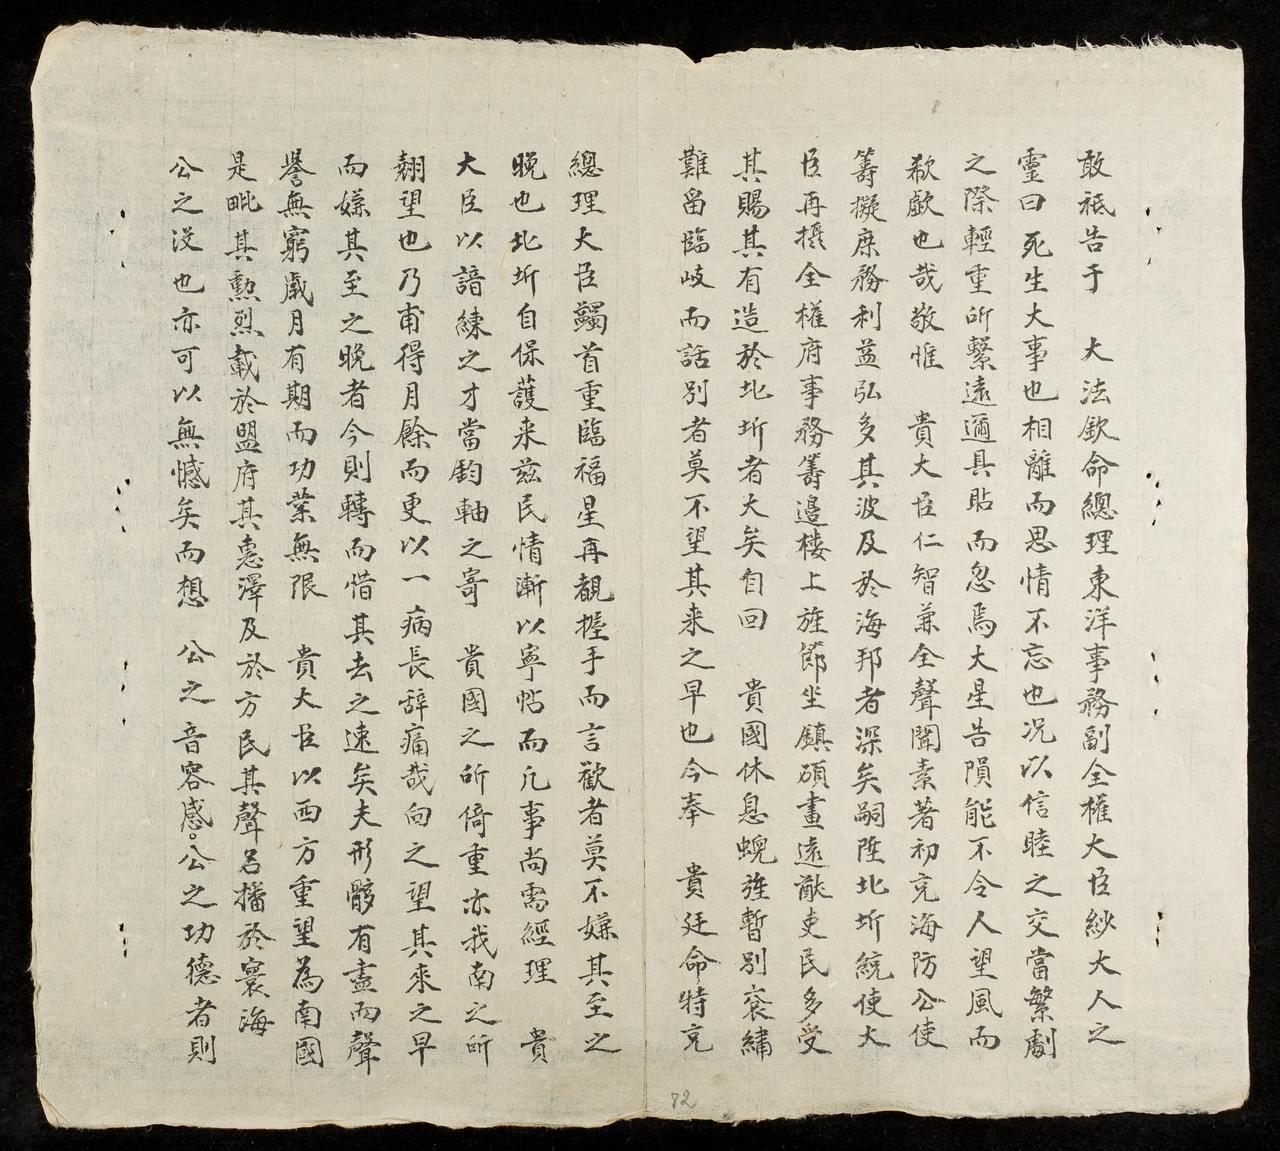 敢祗告于　大法欽命總理東洋事務副全權大臣紗大人之
靈曰死生大事也相離而思情不忘也况以信睦之交當繁劇
之際輕重所繫遠邇具貼而忽焉大星告隕能不令人望風而
欷歔也哉敬惟　貴大臣仁智兼全聲聞素著初克海防公使
籌擬庶務利益弘多其波及於海邦者深矣嗣陞北圻統使大
臣再攝全權府事務籌邉楼上旌節坐鎮碩畫遠猷吏民多受
其賜其有造於北圻者大矣自回　貴國休息蜺旌暫別衮繡
難畱臨岐而話別者莫不望其来之早也今奉　貴廷命特克
總理大臣蠲首重臨福星再覩握手而言歡者莫不嫌其至之
晚也北圻自保護来兹民情漸以寧帖而凢事尚需經理　貴
大臣以諳練之才當鈞軸之寄　貴國之所倚重亦我南之所
翹望也乃甫得月餘而更以一病長辞痛哉向之望其来之早
而嫌其至之晚者今則轉而惜其去之速矣夫形骸有盡而聲
譽無窮歲月有期而功業無限　貴大臣以西方重望為南國
是毗其勲烈載於盟府其惠澤及於方民其聲名播於寰海
公之没也亦可以無憾矣而想　公之音容感公之功德者則
72